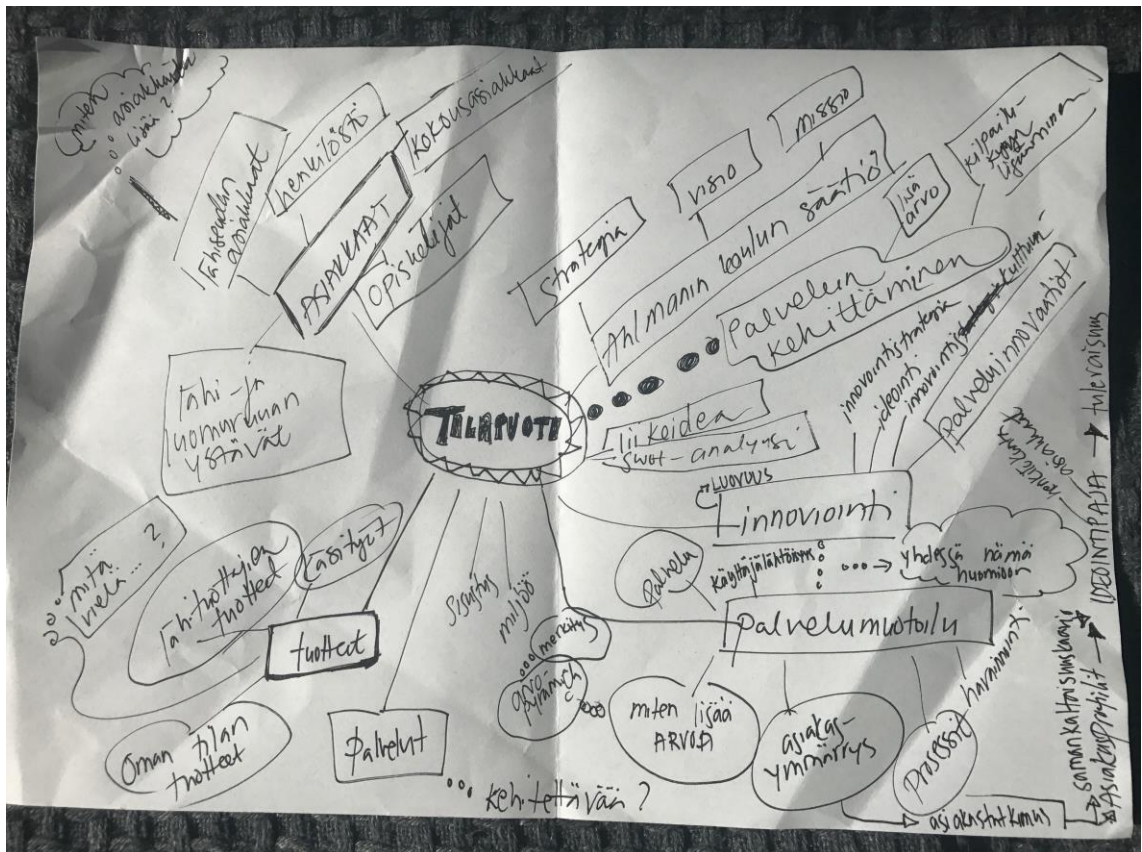 miten
asiakkaita
lisää?
Lähiseudun
asiakkaat
henkilöstö
kokousasiakkaat
ASIAKKAAT
opiskelijat
Lähi- ja
luomuruuan
ystävät
strategia
visio
missio
Ahlmanin koulun säätiö
lisä
arvo
kilpailu-
kyvyn
lisääminen
Palvelun
kehittäminen
TILAPUOTI
liikeidea
swot-analyysi
innovointistrategia
ideointi
innovointi
kulttuuri
palveluinnovaatiot
LUOVUUS
innoviointi
käyttäjälähtöisyys
yhdessä nämä
huomioon
palvelu
palvelumuotoilu
miten lisää
ARVOA
asiakas-
ymmärrys
prosessit
havainnointi
asiakastutkimus
samankaltaisuuskaavio
Asiakasprofiilit
IDEOINTIPAJA → tulevaisuus
henkilökunta
asiakkaat
mitä
vielä... ?
Lähi-tuottajien
tuotteet
käsityöt
tuotteet
Oman tilan
tuotteet
palvelut
sisustus
miljöö
merkitys
arvo-
pyramidi
... kehitettävää?